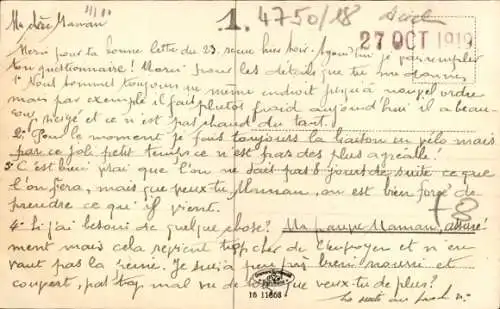 1. 4750/18
27 OCT 1919
Ma chère Maman
Merci pour ta bonne lettre du 23 reçue hier soir. Aujourd'hui je vais remplir
ton questionnaire ! Merci pour les détails que tu me donnes
1° Nous sommes toujours au même endroit jusqu'à nouvel ordre
mais par exemple il fait plutôt froid aujourd'hui il a beau-
coup neigé et ce n'est pas chaud du tout.
2° Pour le moment je fais toujours la liaison en vélo mais
par ce joli petit temps ce n'est pas des plus agréable !
3° C'est bien vrai que l'on ne sait pas 8 jours de suite ce que
l'on fera, mais que veux-tu Maman, on est bien forcé de
prendre ce qu'il vient.
4° Si j'ai besoin de quelque chose ? Ma pauvre Maman, assuré
ment mais cela revient trop cher de l'envoyer et n'en
vaut pas la peine. Je suis à peu près bien nourri et
couvert, pas trop mal vu de que veux-tu de plus ?
La suite au
16 11668